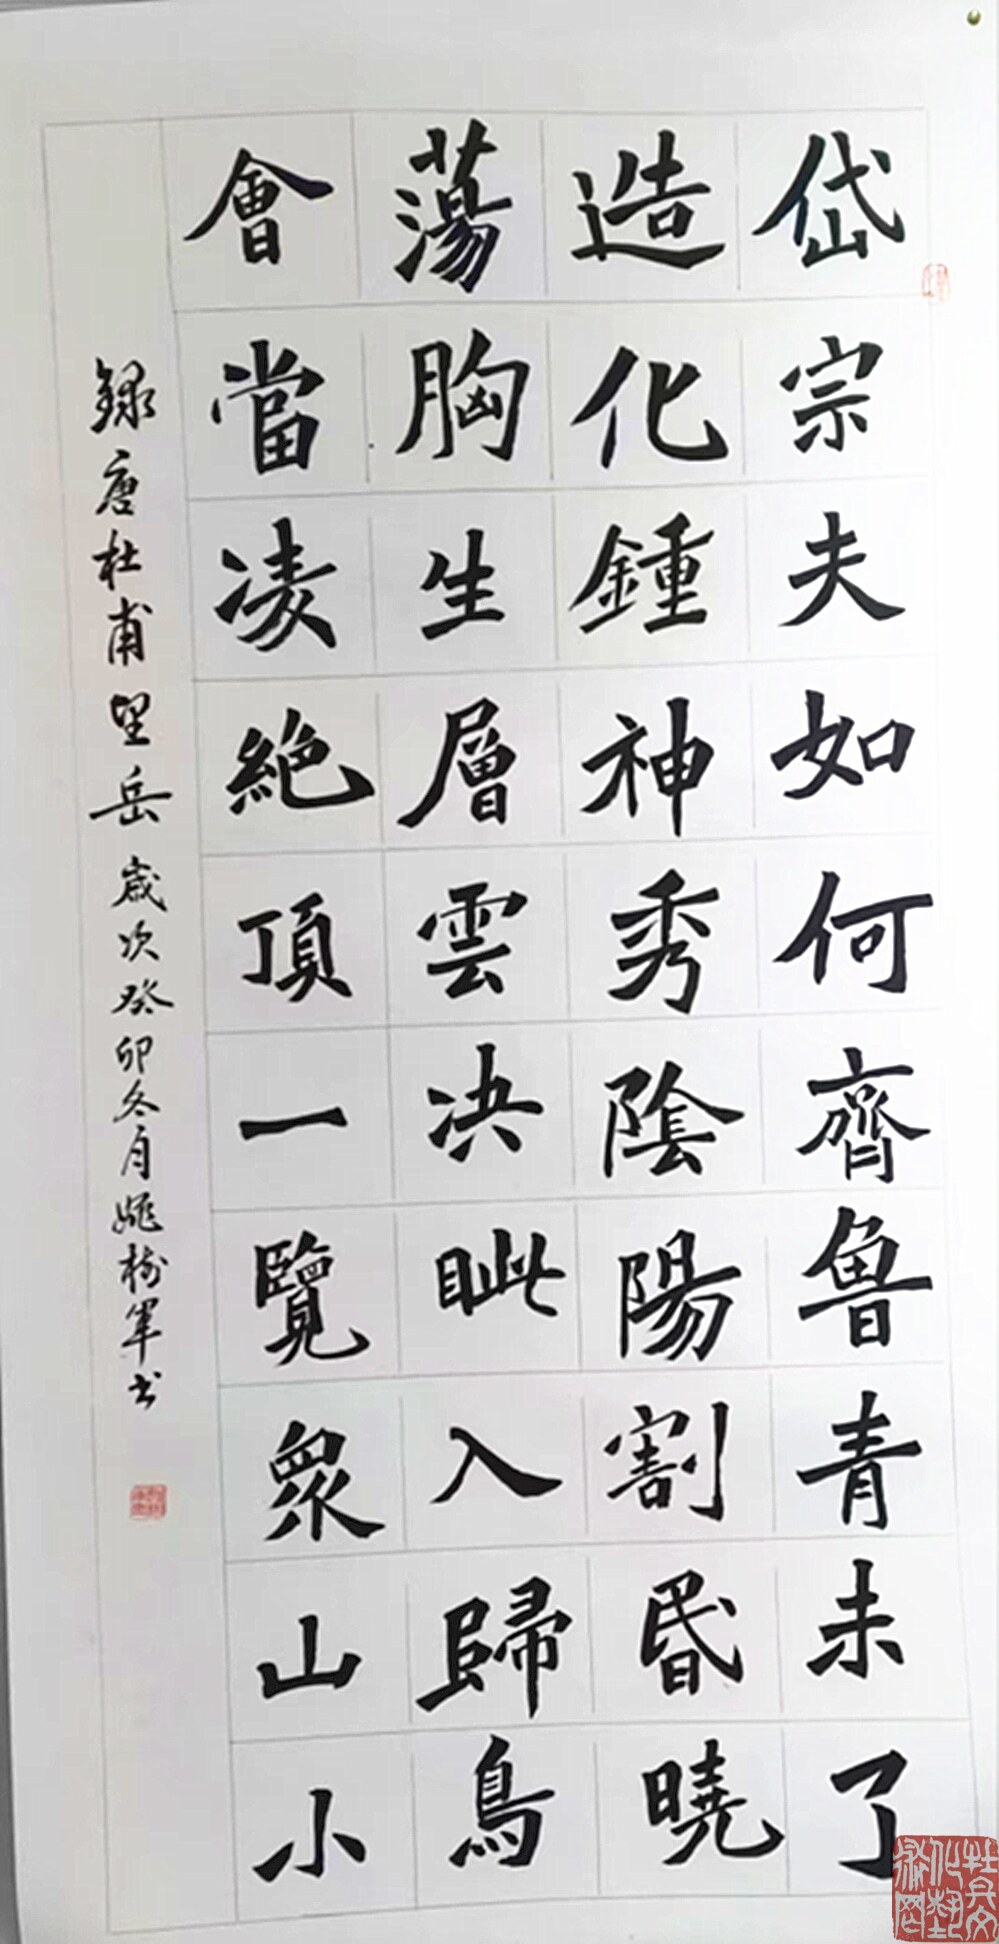 岱宗夫如何齊魯青未了
造化鍾神秀陰陽割昏曉
蕩胸生層雲决眦入歸鳥
會當凌絶頂一覽衆山小
録唐杜甫望岳歲次癸卯冬月姚樹軍书